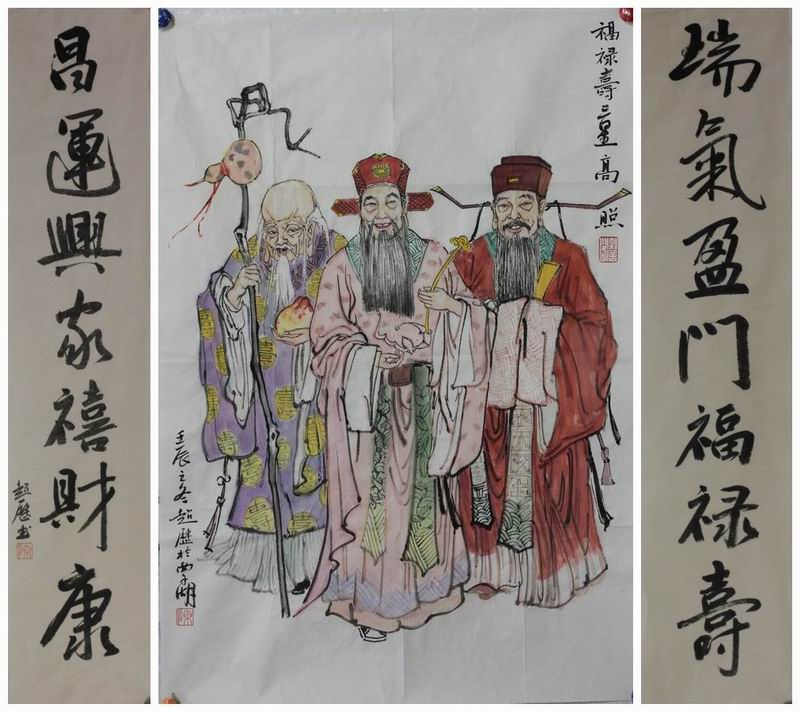 瑞氣盈門福禄壽
福禄壽三星高照
壬辰之冬超歷於西子湖
昌運興家禧財康
超歷书